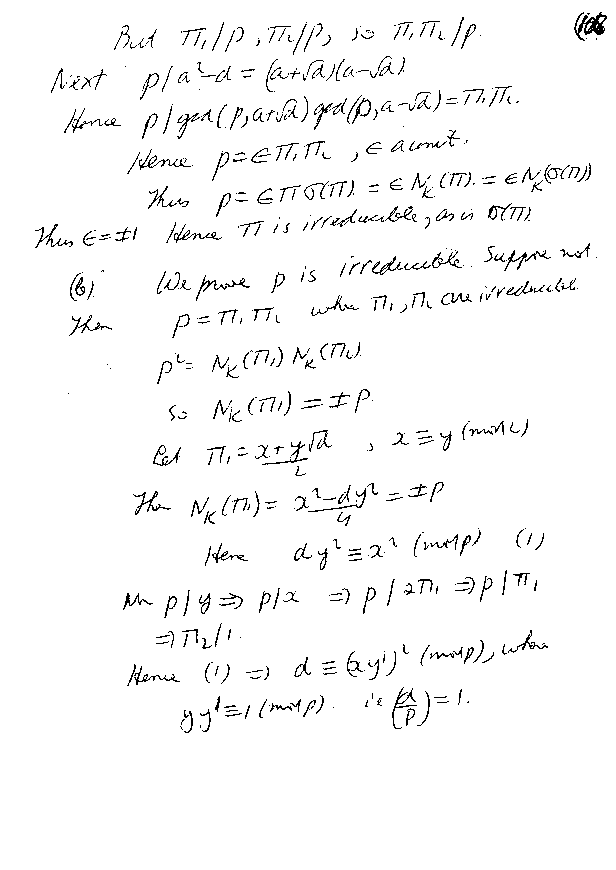 (108
But π₁/p, π₂/p, so π₁π₂/p.
Next p/a²-d = (a+√d)(a-√d).
Hence p/gcd(p,a+√d)gcd(p,a-√d)=π₁π₂.
Hence p=∈π₁π₂, ∈ a unit.
Thus p=∈πσ(π) = ∈N_K(π). = ∈N_K(σ(π))
Thus ∈=±1 Hence π is irreducible, as is σ(π).
(b). We prove p is irreducible. Suppose not.
Then p=π₁π₂ where π₁, π₂ are irreducible.
p²= N_K(π₁) N_K(π₂).
So N_K(π₁) = ±p.
Let π₁ = (x+y√d)/2, x ≡ y (mod 2)
Then N_K(π₁) = (x²-dy²)/4 = ±p
Hence dy² ≡ x² (mod p) (1)
p/y ⇒ p/x ⇒ p/2π₁ ⇒ p/π₁
⇒ π₂/1.
Hence (1) ⇒ d ≡ (xy')² (mod p), where
yy' ≡ 1 (mod p). i.e (d/p) = 1.